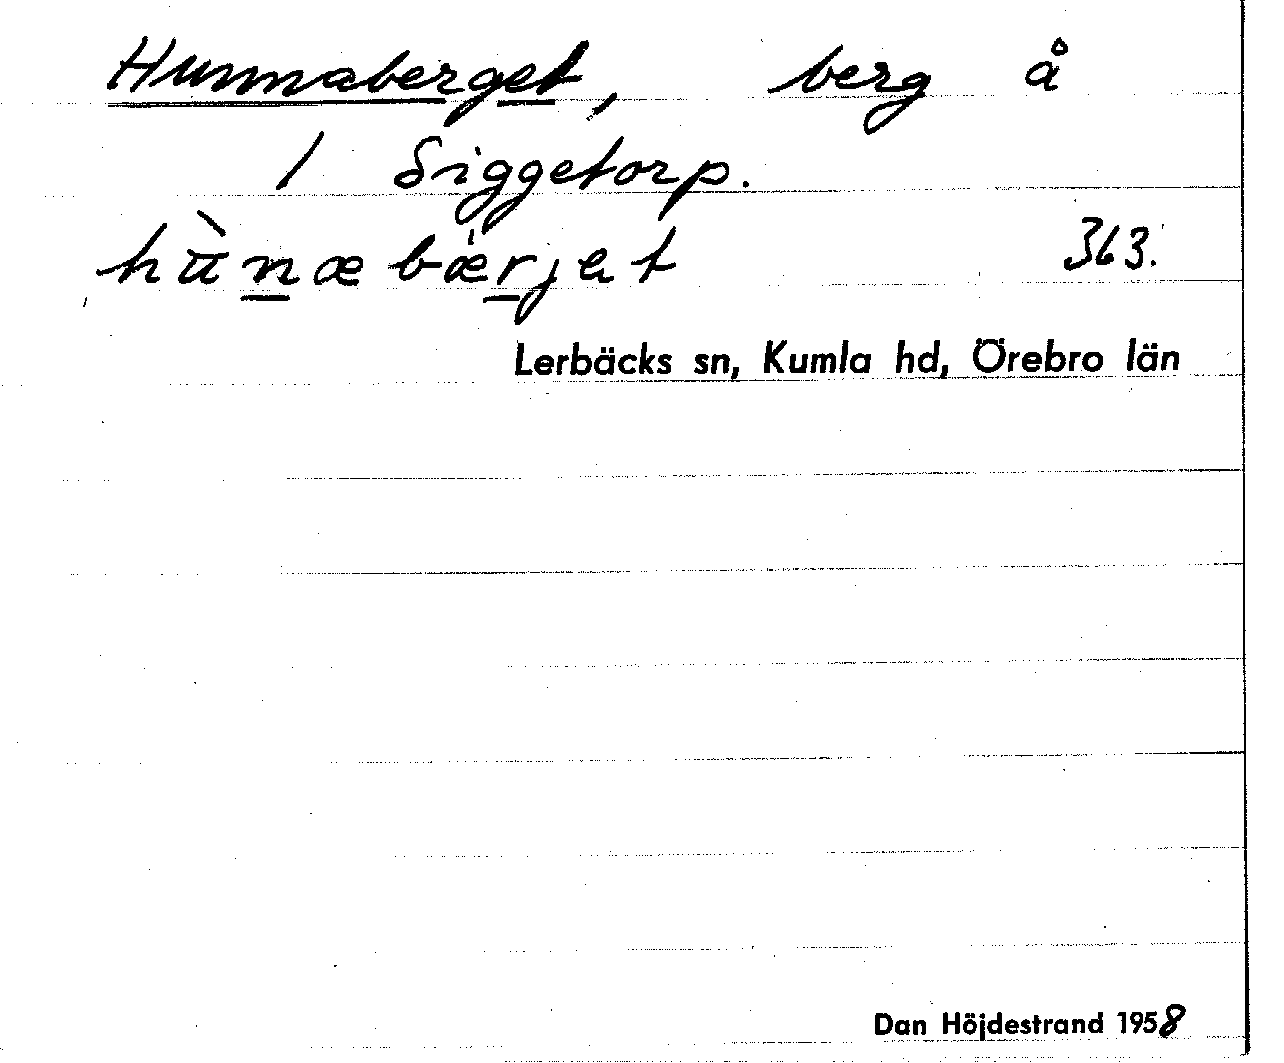 Hunnaberget, berg å
1 Siggetorp.
hùnæbærjet 363.
Lerbäcks sn, Kumla hd, Örebro län
Dan Höjdestrand 1958